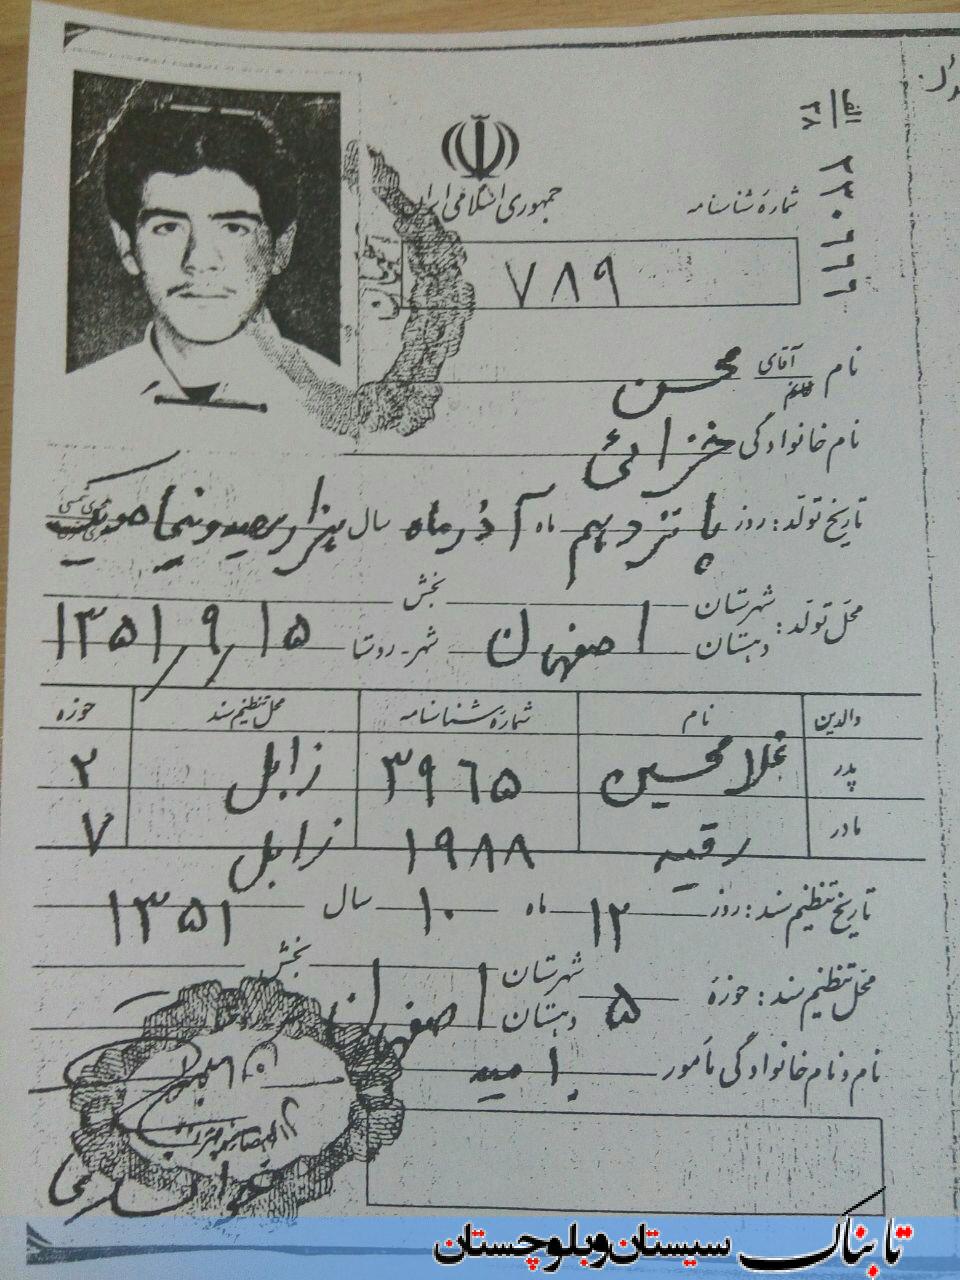 الف
۳۸
۲۳۰۶۶۹
جمهوری اسلامی ایران
شماره شناسنامه
۷۸۹
نام آقای خانم محسن
نام خانوادگی خزائی
تاریخ تولد: روز پانزدهم ماه آذر ماه سال هزار سیصد و پنجاه و یک
محل تولد: شهرستان دهستان اصفهان بخش شهر - روستا ۱۳۵۱/۹/۱۵
والدین نام شماره شناسنامه محل تنظیم سند حوزه
پدر غلامحسین ۳۹۶۵ زابل ۲
مادر رقیه ۱۹۸۸ زابل ۷
تاریخ تنظیم سند: روز ۱۲ ماه ۱۰ سال ۱۳۵۱
محل تنظیم سند: حوزه ۵ شهرستان دهستان اصفهان بخش
نام و نام خانوادگی مامور
تابناک سیستان وبلوچستان